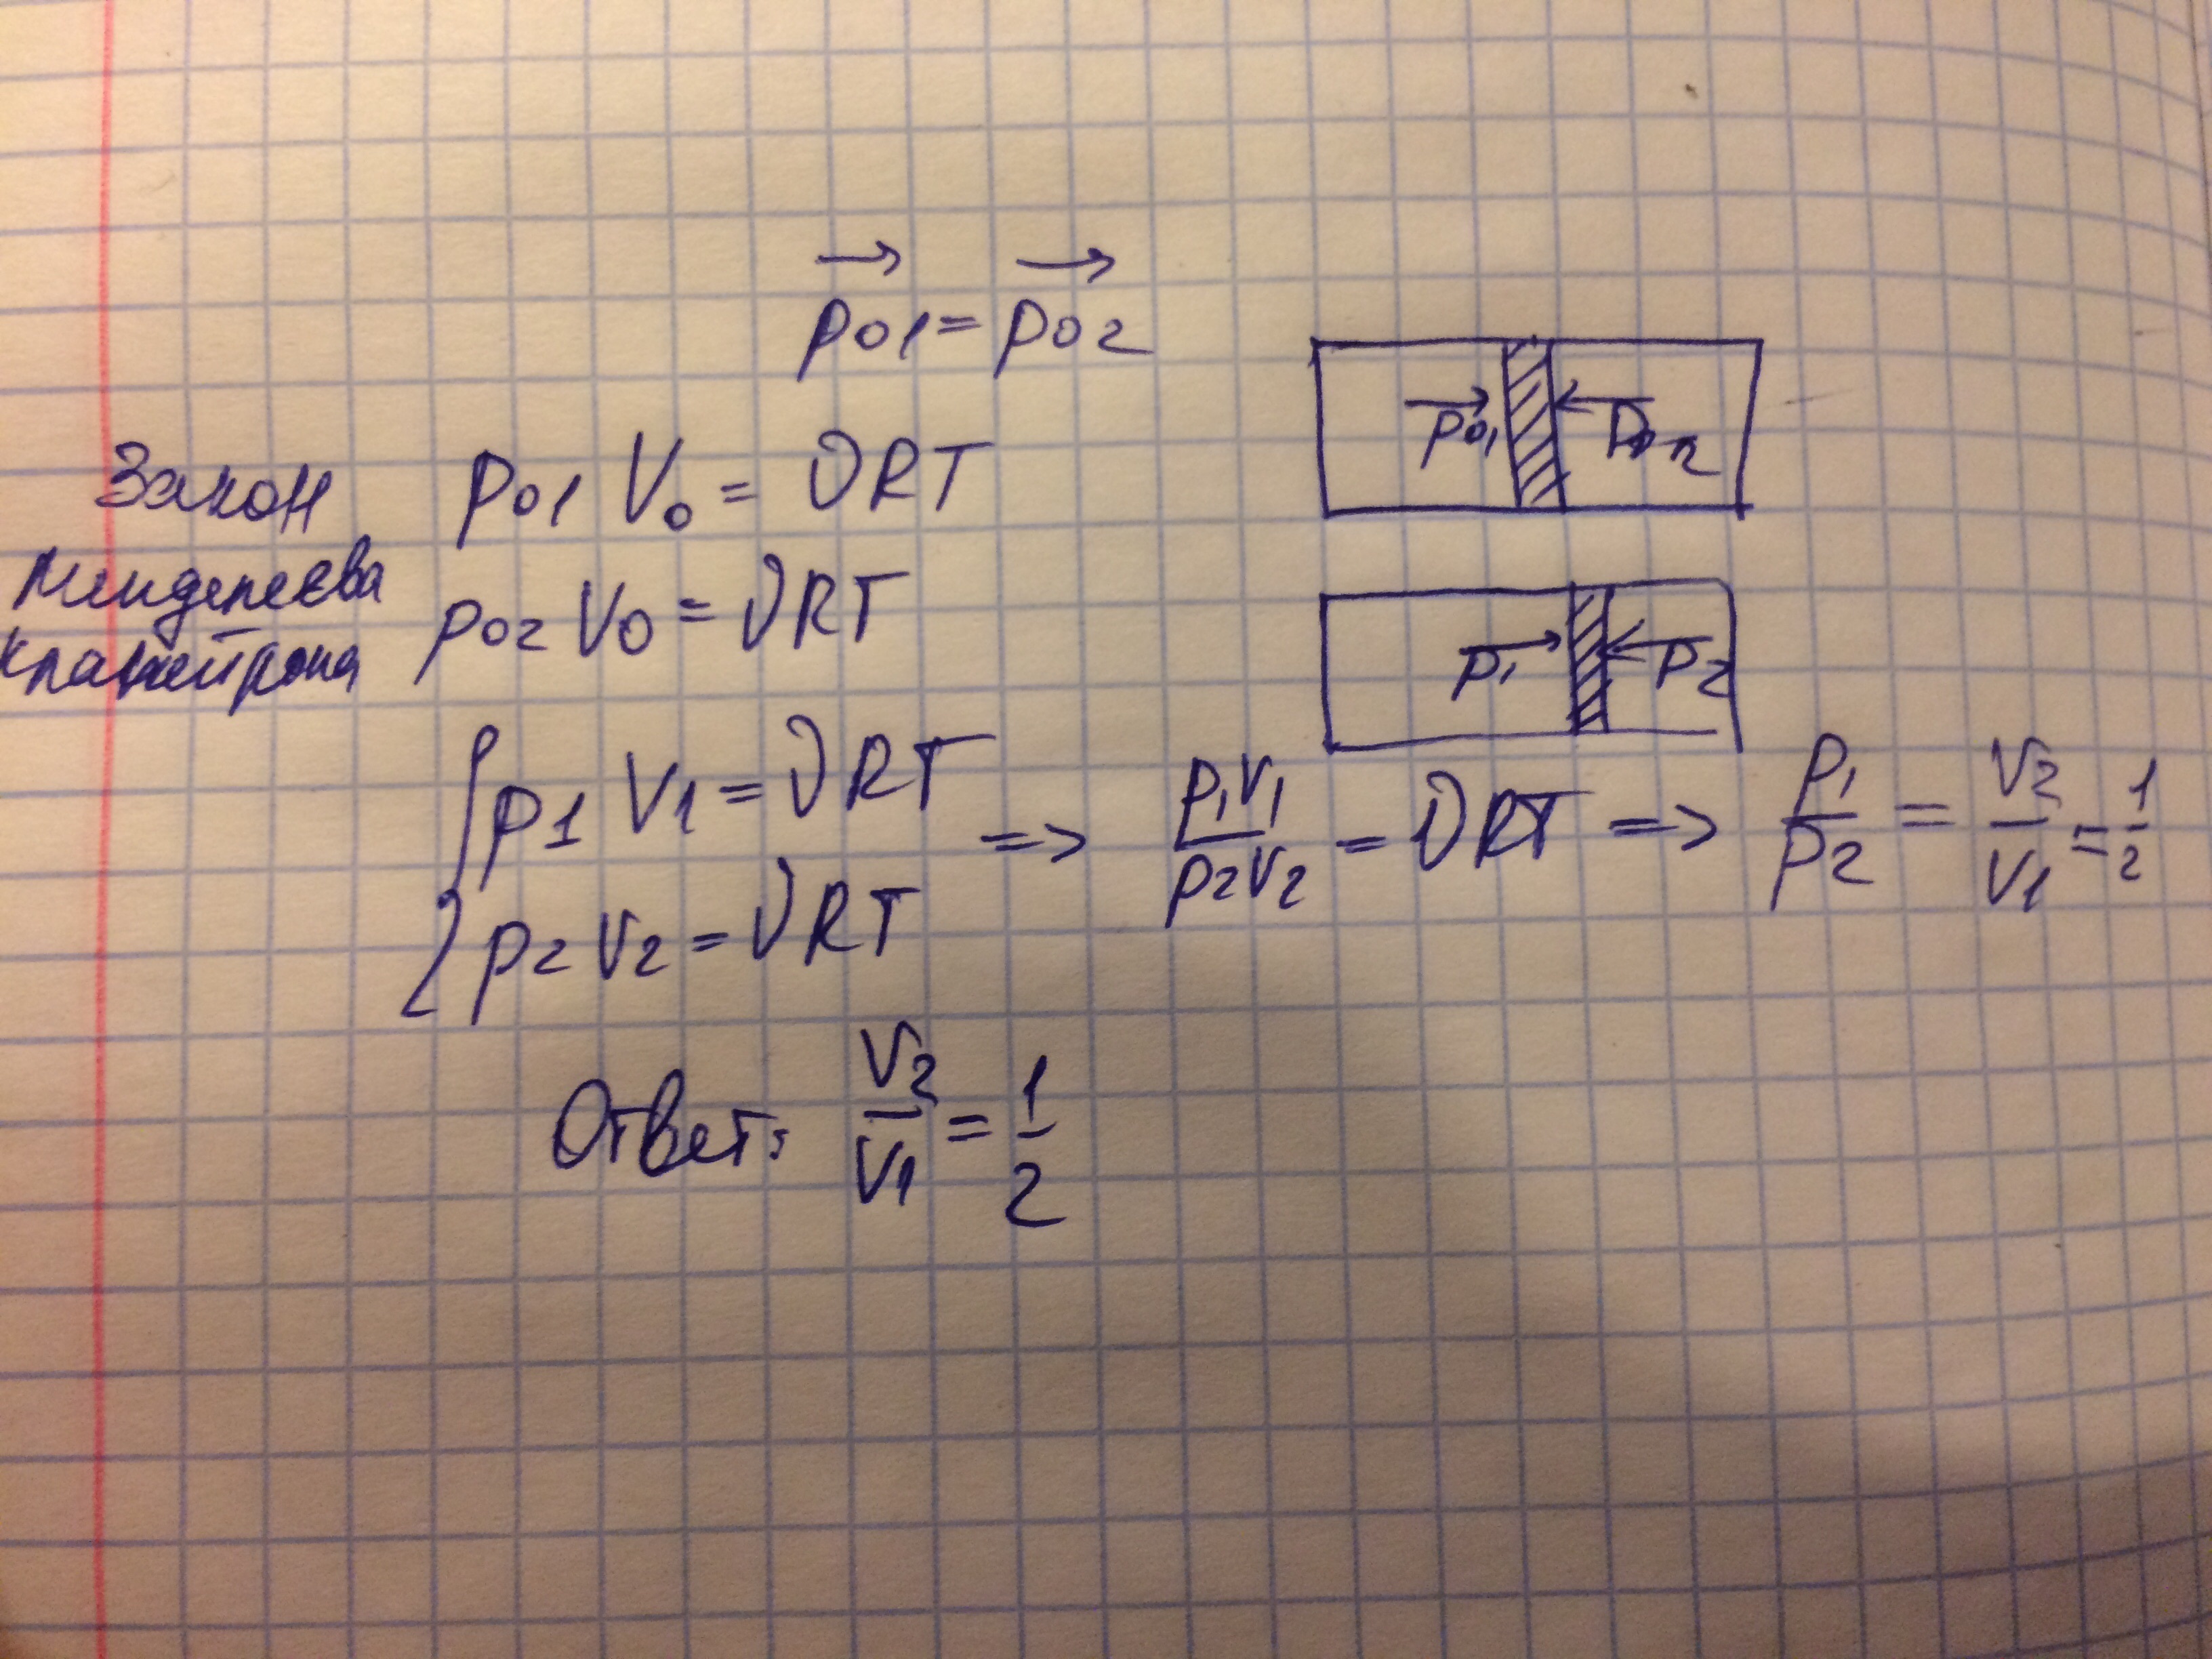 p01 = p02
p01 V0 = νRT
Закон
Менделеева
Клапейрона
p02 V0 = νRT
p01 p02
p1 p2
p1 V1 = νRT
p2 V2 = νRT
=> p1V1/p2V2 = νRT => p1/p2 = V2/V1 = 1/2
Ответ: V2/V1 = 1/2